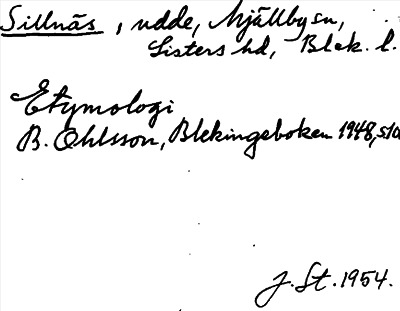 Sillnäs, udde, Mjällby sn,
Listers hd, Blek. l.
Etymologi
B. Ohlsson, Blekingeboken 1948, s.10
J. St. 1954.